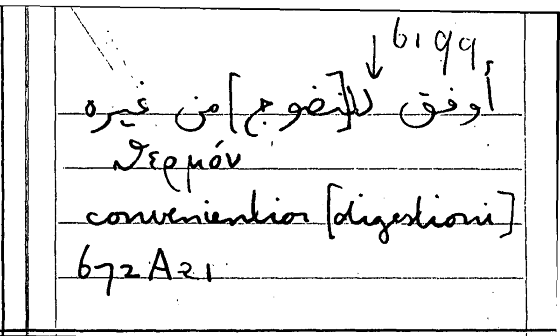 ↓ 6199,
أوفق لل[نضوج] من غيره
ϑερμόν
convenientior [digestioni]
672A21